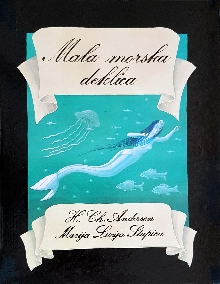 Mala morska
deklica
H. Ch. Andersen
Marija Lucija Stupica